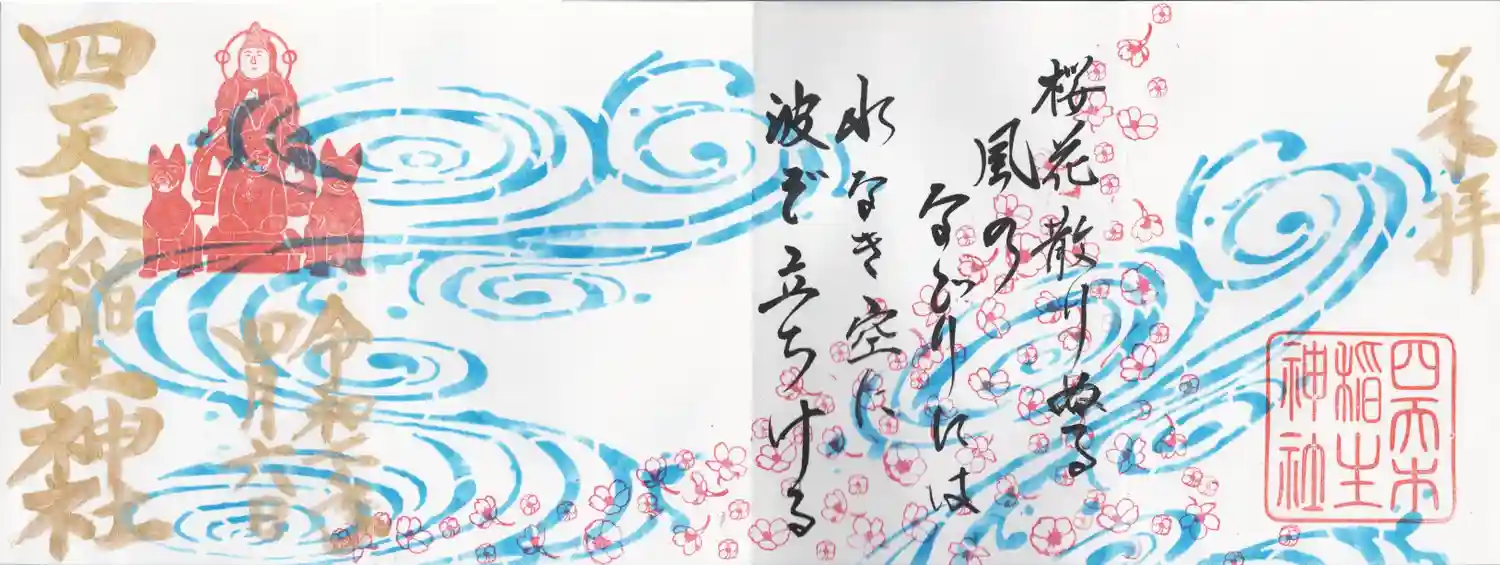 奉拝
四天木
稲生
神社
桜花 散りぬる
風の
なごりには
水なき空に
波ぞ立ちける
令和六年
四月六日
四天木稲生神社